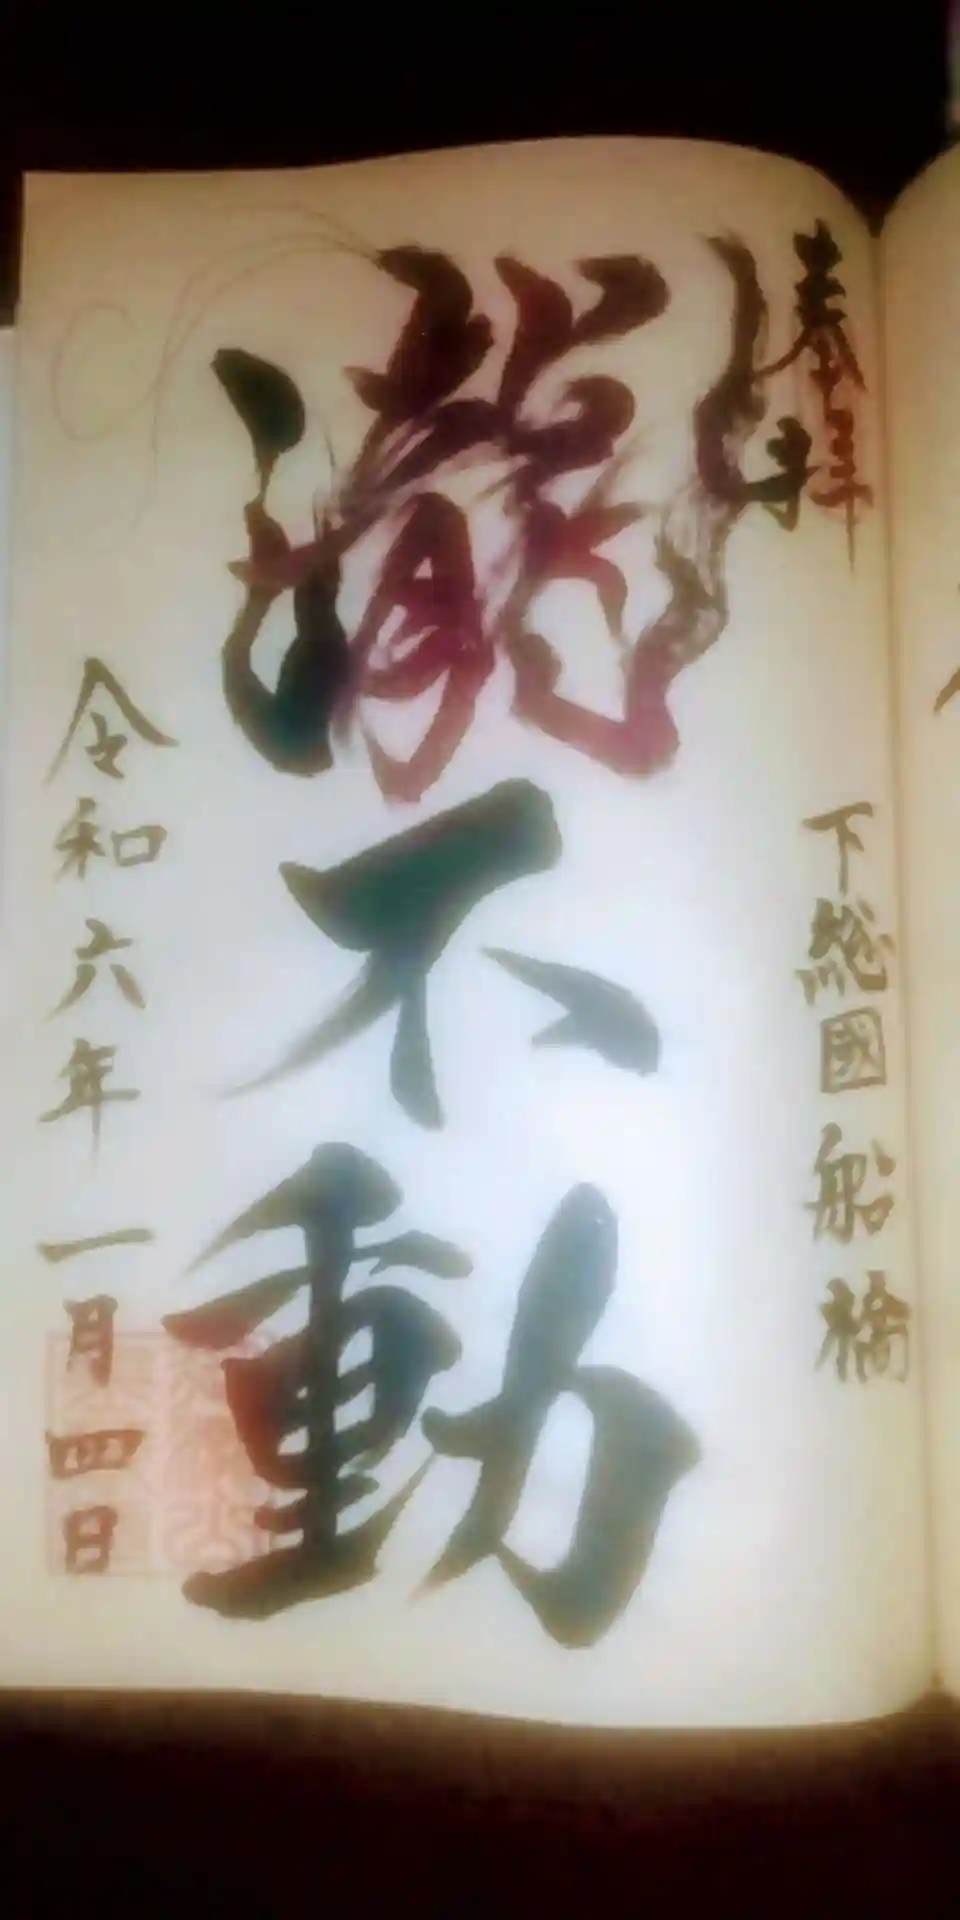 奉拝
下総國船橋
瀧不動
令和六年一月四日